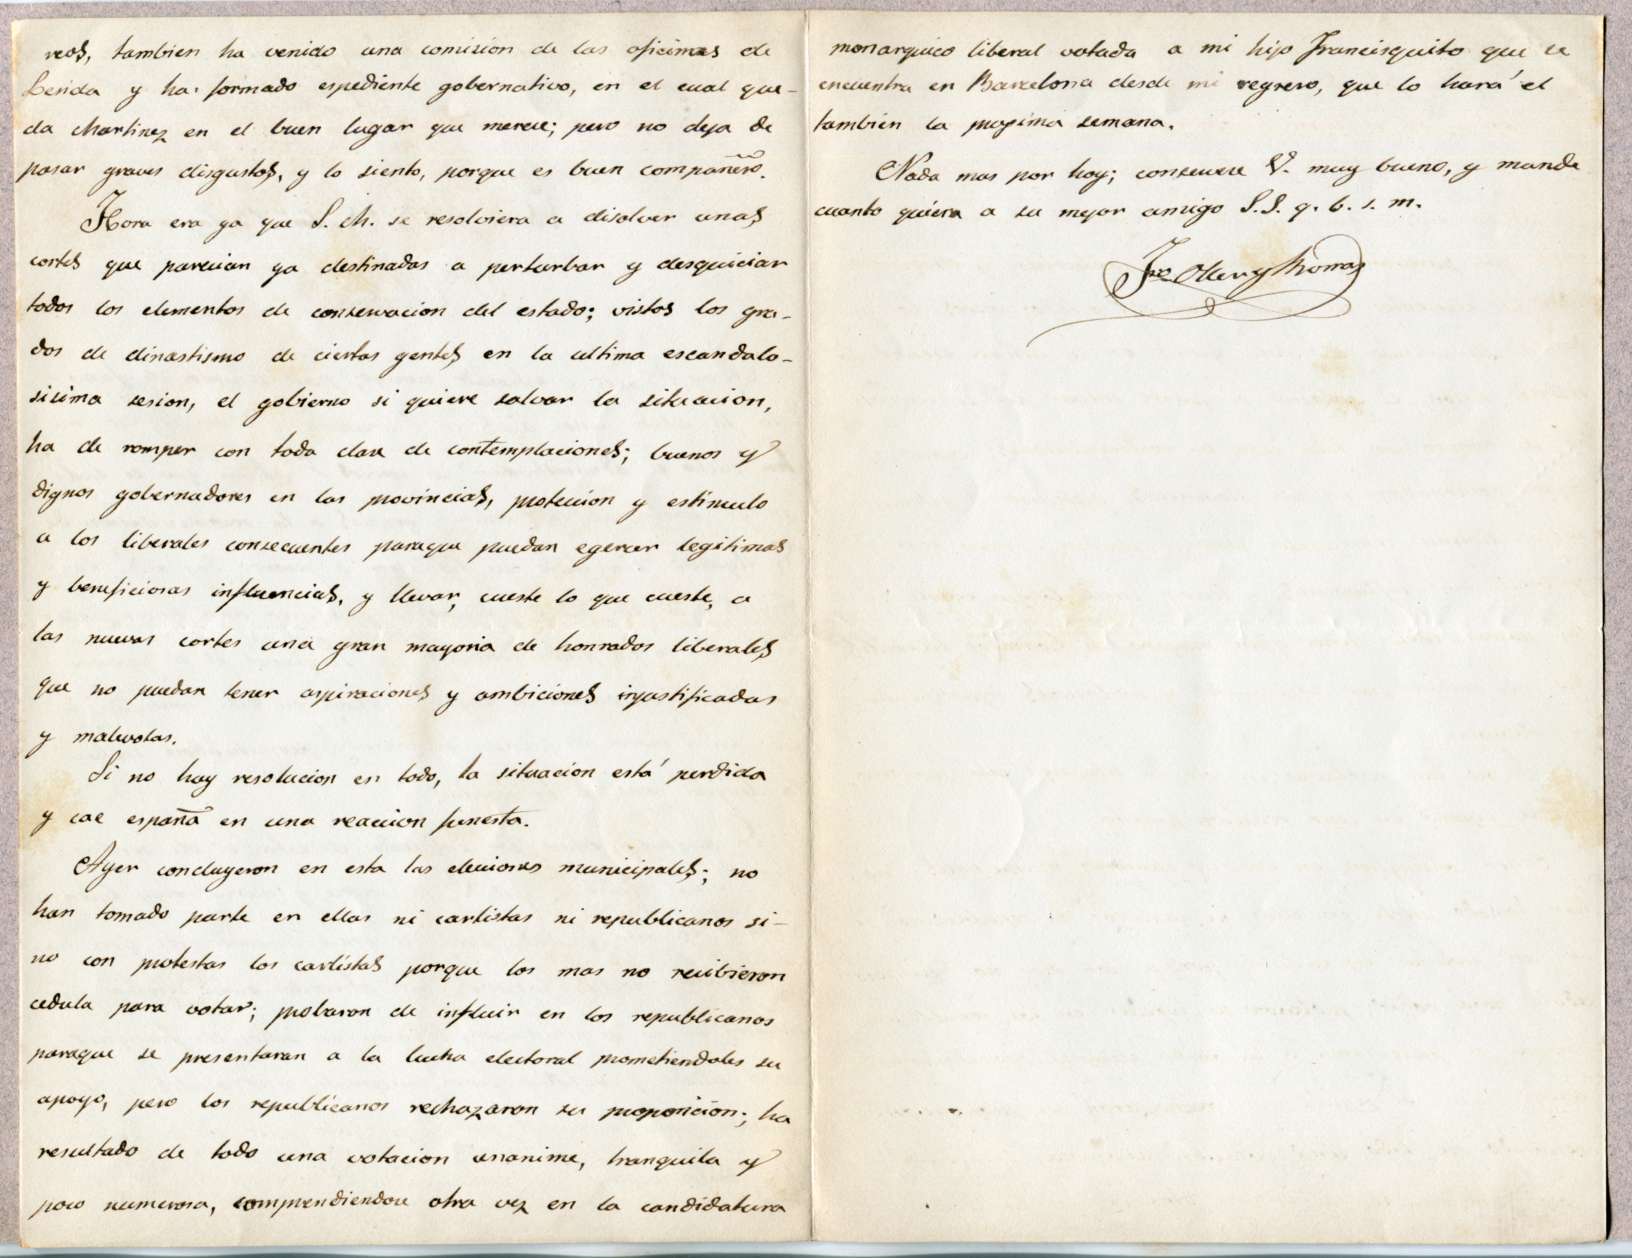 reos, tambien ha venido una comisión de las oficinas de
Lerida y ha formado espediente gobernativo, en el cual que-
da Martinez en el buen lugar que merece; pero no deja de
pasar graves disgustos, y lo siento, porque es buen compañero.
Hora era ya que S. M. se resolviera a disolver unas
cortes que parecian ya destinadas a perturbar y desquiciar
todos los elementos de conservacion del estado; vistos los gra-
dos de dinastismo de ciertas gentes en la ultima escandalo-
sisima sesion, el gobierno si quiere salvar la situacion,
ha de romper con toda clase de contemplaciones; buenos y
dignos gobernadores en las provincias, proteccion y estímulo
a los liberales consecuentes paraque puedan egercer legitimas
y beneficiosas influencias, y llevar, cueste lo que cueste, a
las nuevas cortes una gran mayoria de honrados liberales
que no puedan tener aspiraciones y ambiciones injustificadas
y malevolas.
Si no hay resolucion en todo, la situacion está perdida
y cae españa en una reaccion funesta.
Ayer concluyeron en esta las elecciones municipales; no
han tomado parte en ellas ni carlistas ni republicanos si-
no con protestas los carlistas porque los mas no recibieron
cedula para votar; probaron de influir en los republicanos
paraque se presentaran a la lucha electoral prometiendoles su
apoyo, pero los republicanos rechazaron su proposición; ha
resultado de todo una votacion unanime, tranquila y
poco numerosa, comprendiendose otra vez en la candidatura
monarquico liberal votada a mi hijo Francisquito que se
encuentra en Barcelona desde mi regreso, que lo hará el
tambien la procsima semana.
Nada mas por hoy; conservese V. muy bueno, y mande
cuanto quiera a su mejor amigo S.S. q. b. s. m.
Oller y Thomas